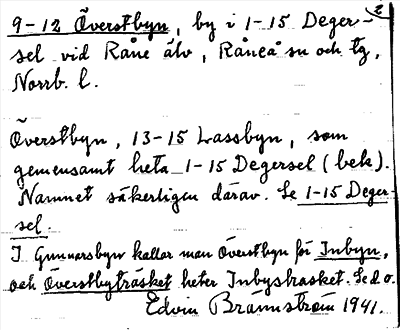 2
9-12 Överstbyn, by i 1-15 Deger-
sel vid Råne älv, Råneå sn och tg,
Norrb. l.
Överstbyn, 13-15 Lassbyn, som
gemensamt heta 1-15 Degersel (bek).
Namnet säkerligen därav. Se 1-15 Deger-
sel.
I Gunnarsbyn kallar man Överstbyn för Inbyn,
och Överstbyträsket heter Inbysträsket. Se d.o.
Edvin Brännström 1941.